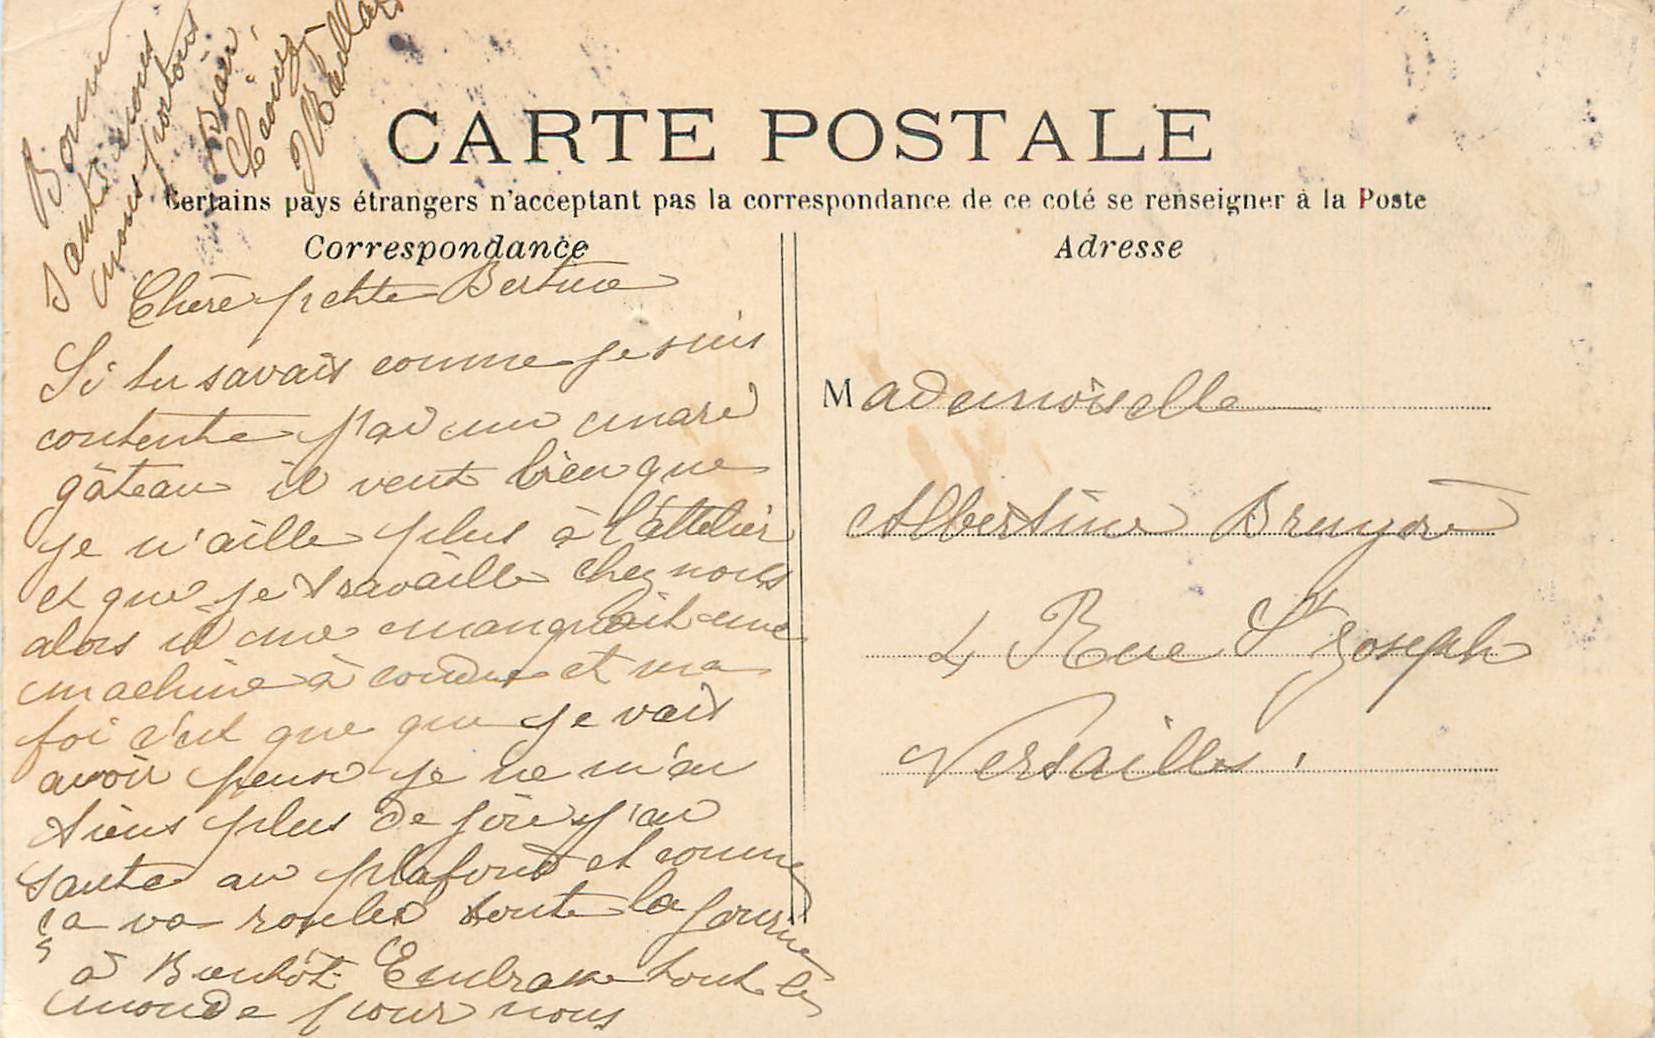 CARTE POSTALE
Certains pays étrangers n'acceptant pas la correspondance de ce coté se renseigner à la Poste
Correspondance
Adresse
Bonne
santé nous
nous portons
bien
Chère petite Bertine
Si tu savais comme je suis
contente j'ai un mari
gâteau il veut bien que
je n'aille plus à l'attelier
et que je travaille chez nous
alors il me manquait une
machine à coudre et ma
foi c'est que que je vais
avoir pense je ne m'en
tiens plus de joie j'en
saute au plafond et comme
ça va rouler toute la journée
à Bientôt Embrasse tout le
monde pour nous
Mademoiselle
Albertine Bruyère
4 Rue St Joseph
Versailles.